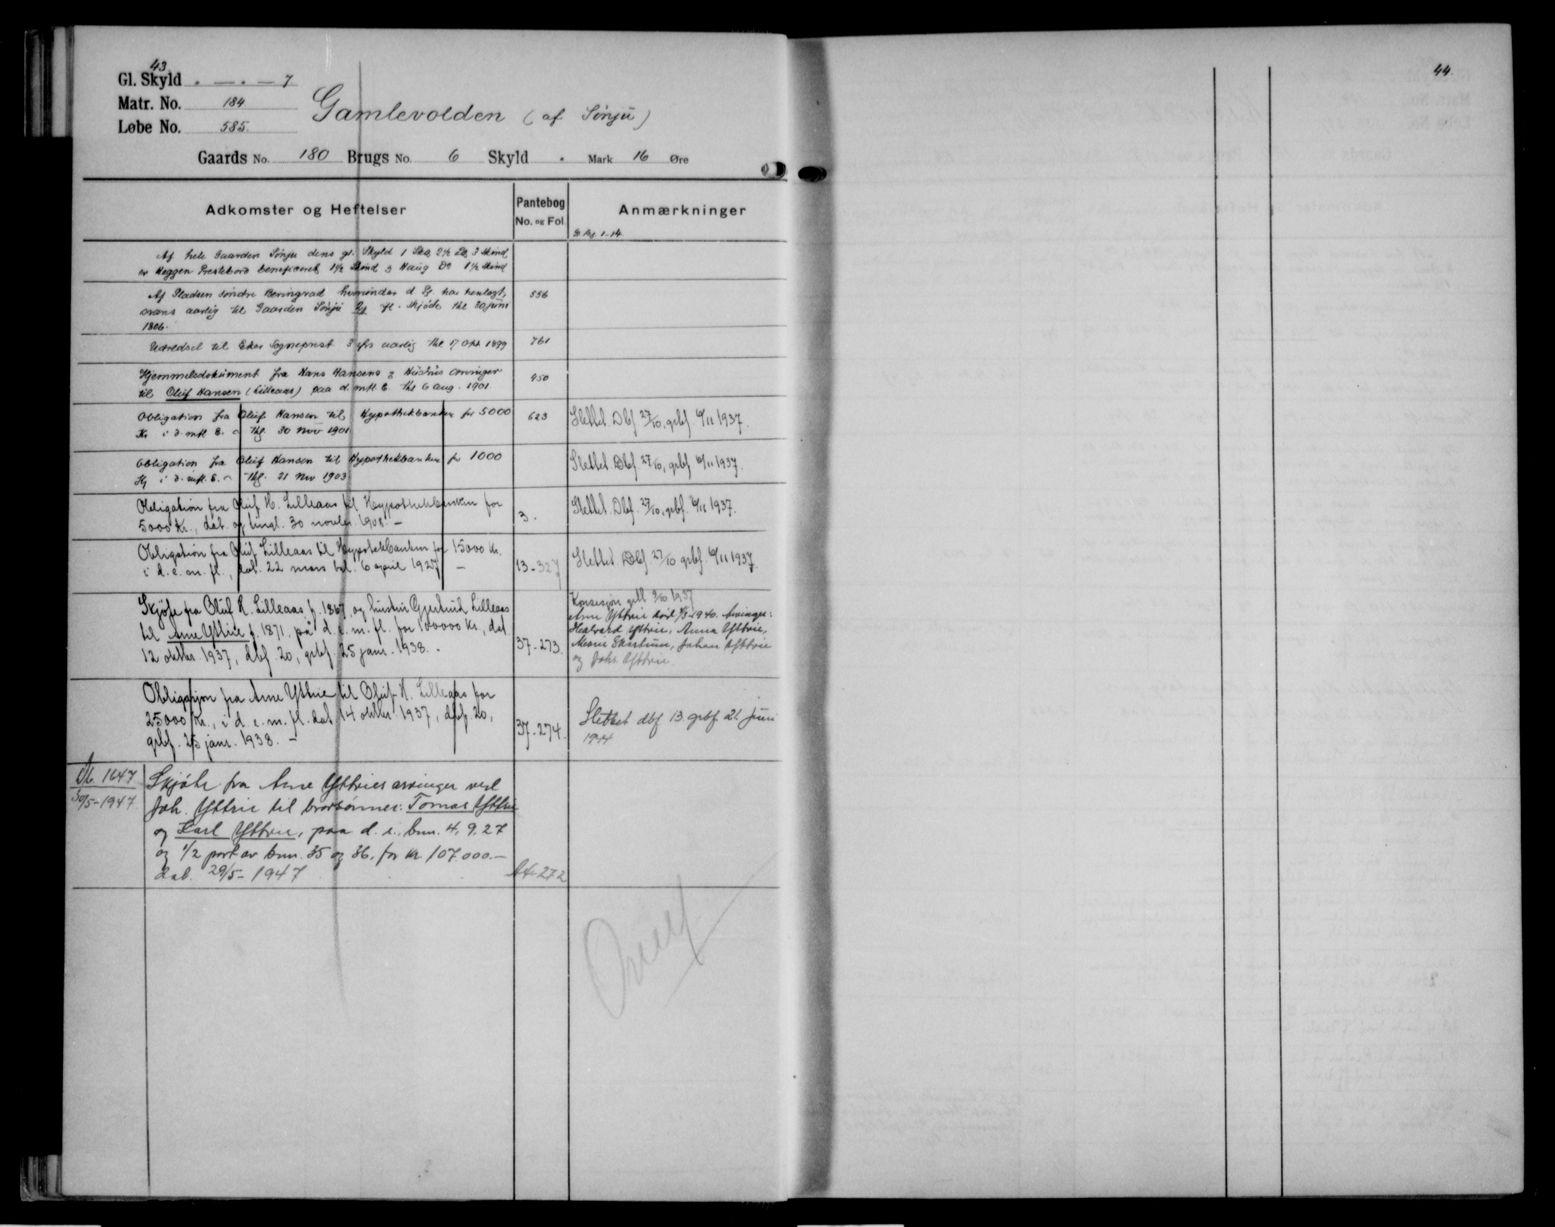 43
Gl. Skyld . — . — 7
Matr. No. 184
Løbe No. 585.
Gamlevolden (af Sönju)
Gaards No. 180 Brugs No. 6 Skyld . Mark 16 Øre
Adkomster og Heftelser
Pantebog
No. og Fol.
Anmærkninger
Af hele Gaarden Sönju dens gl. Skyld 1 3 Skind
er Heggen Prestebord beneficeret 1½ Skind & Haug Do 1½ Skind
Af Pladsen söndre
svares aarlig til Gaarden Sönju fl. Skjöde thl 20 juni
1806.
556
til Eker Sogneprest aarlig thl 17 Okt 1899
761
Hjemmelsdokument fra Hans Hansens & Hustrus arvinger
til Oluf Hansen (Lilleaas) paa d. mfl E. thl 6 aug. 1901
450
Obligation fra Oluf Hansen til Hypothekbanken for 5000
Kr i d. mfl E. thl. 30 Nov 1901
623
Slettet. Dbf 27/10, grbf. 6/11 1937.
Obligation fra Oluf Hansen til Hypothekbanken for 1000
Kr i d. mfl. E. thl. 21 Nov 1903
Slettet. Dbf 27/10, grbf 6/11 1937.
Obligation fra Oluf H. Lilleaas til Hypothekbanken for
5000 Kr., dat. og tingl. 30 novbr. 1908. —
3.
Slettet. Dbf. 27/10, grbf. 6/11 1937.
Obligation fra Oluf Lilleaas til Hypotekbanken for 15000 Kr.
i d. e. m. fl., dat. 22 mars tgl. 6 april 1927 —
13-327
Slettet Dbf 27/10 grbf. 6/11 1937.
Skjøte fra Oluf H. Lilleaas f. 1867 og hustru Gjertrud Lilleaas
til Arne Yttrie f. 1871. på d. e. m. fl. for 100000 Kr., dat.
12 oktbr 1937, dbf. 20, grbf. 25 janr. 1938. -
37-273.
Konsesjon 9/10 1937
Arne Yttrie död 1940. Arvinger:
Hallvard Yttrie, Anna Yttrie,
Johan Yttrie
og Yttrie
Obligasjon fra Arne Yttrie til Oluf H. Lilleaas for
25000 Kr., i d. e. m. fl. dat. 14 oktbr 1937, dbf. 20,
grbf. 25 janr. 1938. —
37-274.
Slettet dbf 13. grbf 21. juni
1944
Db. 1647
30/5-1947.
Skjöte fra Arne Yttries arvinger ved
Joh. Yttrie til brorsönner: Tomas Yttrie
og Karl Yttrie, paa d. e., bnr. 4, 9, 27
og 1/2 part av bnr. 35 og 36, for kr 107.000.—
dat. 29/5-1947
A4-272
44